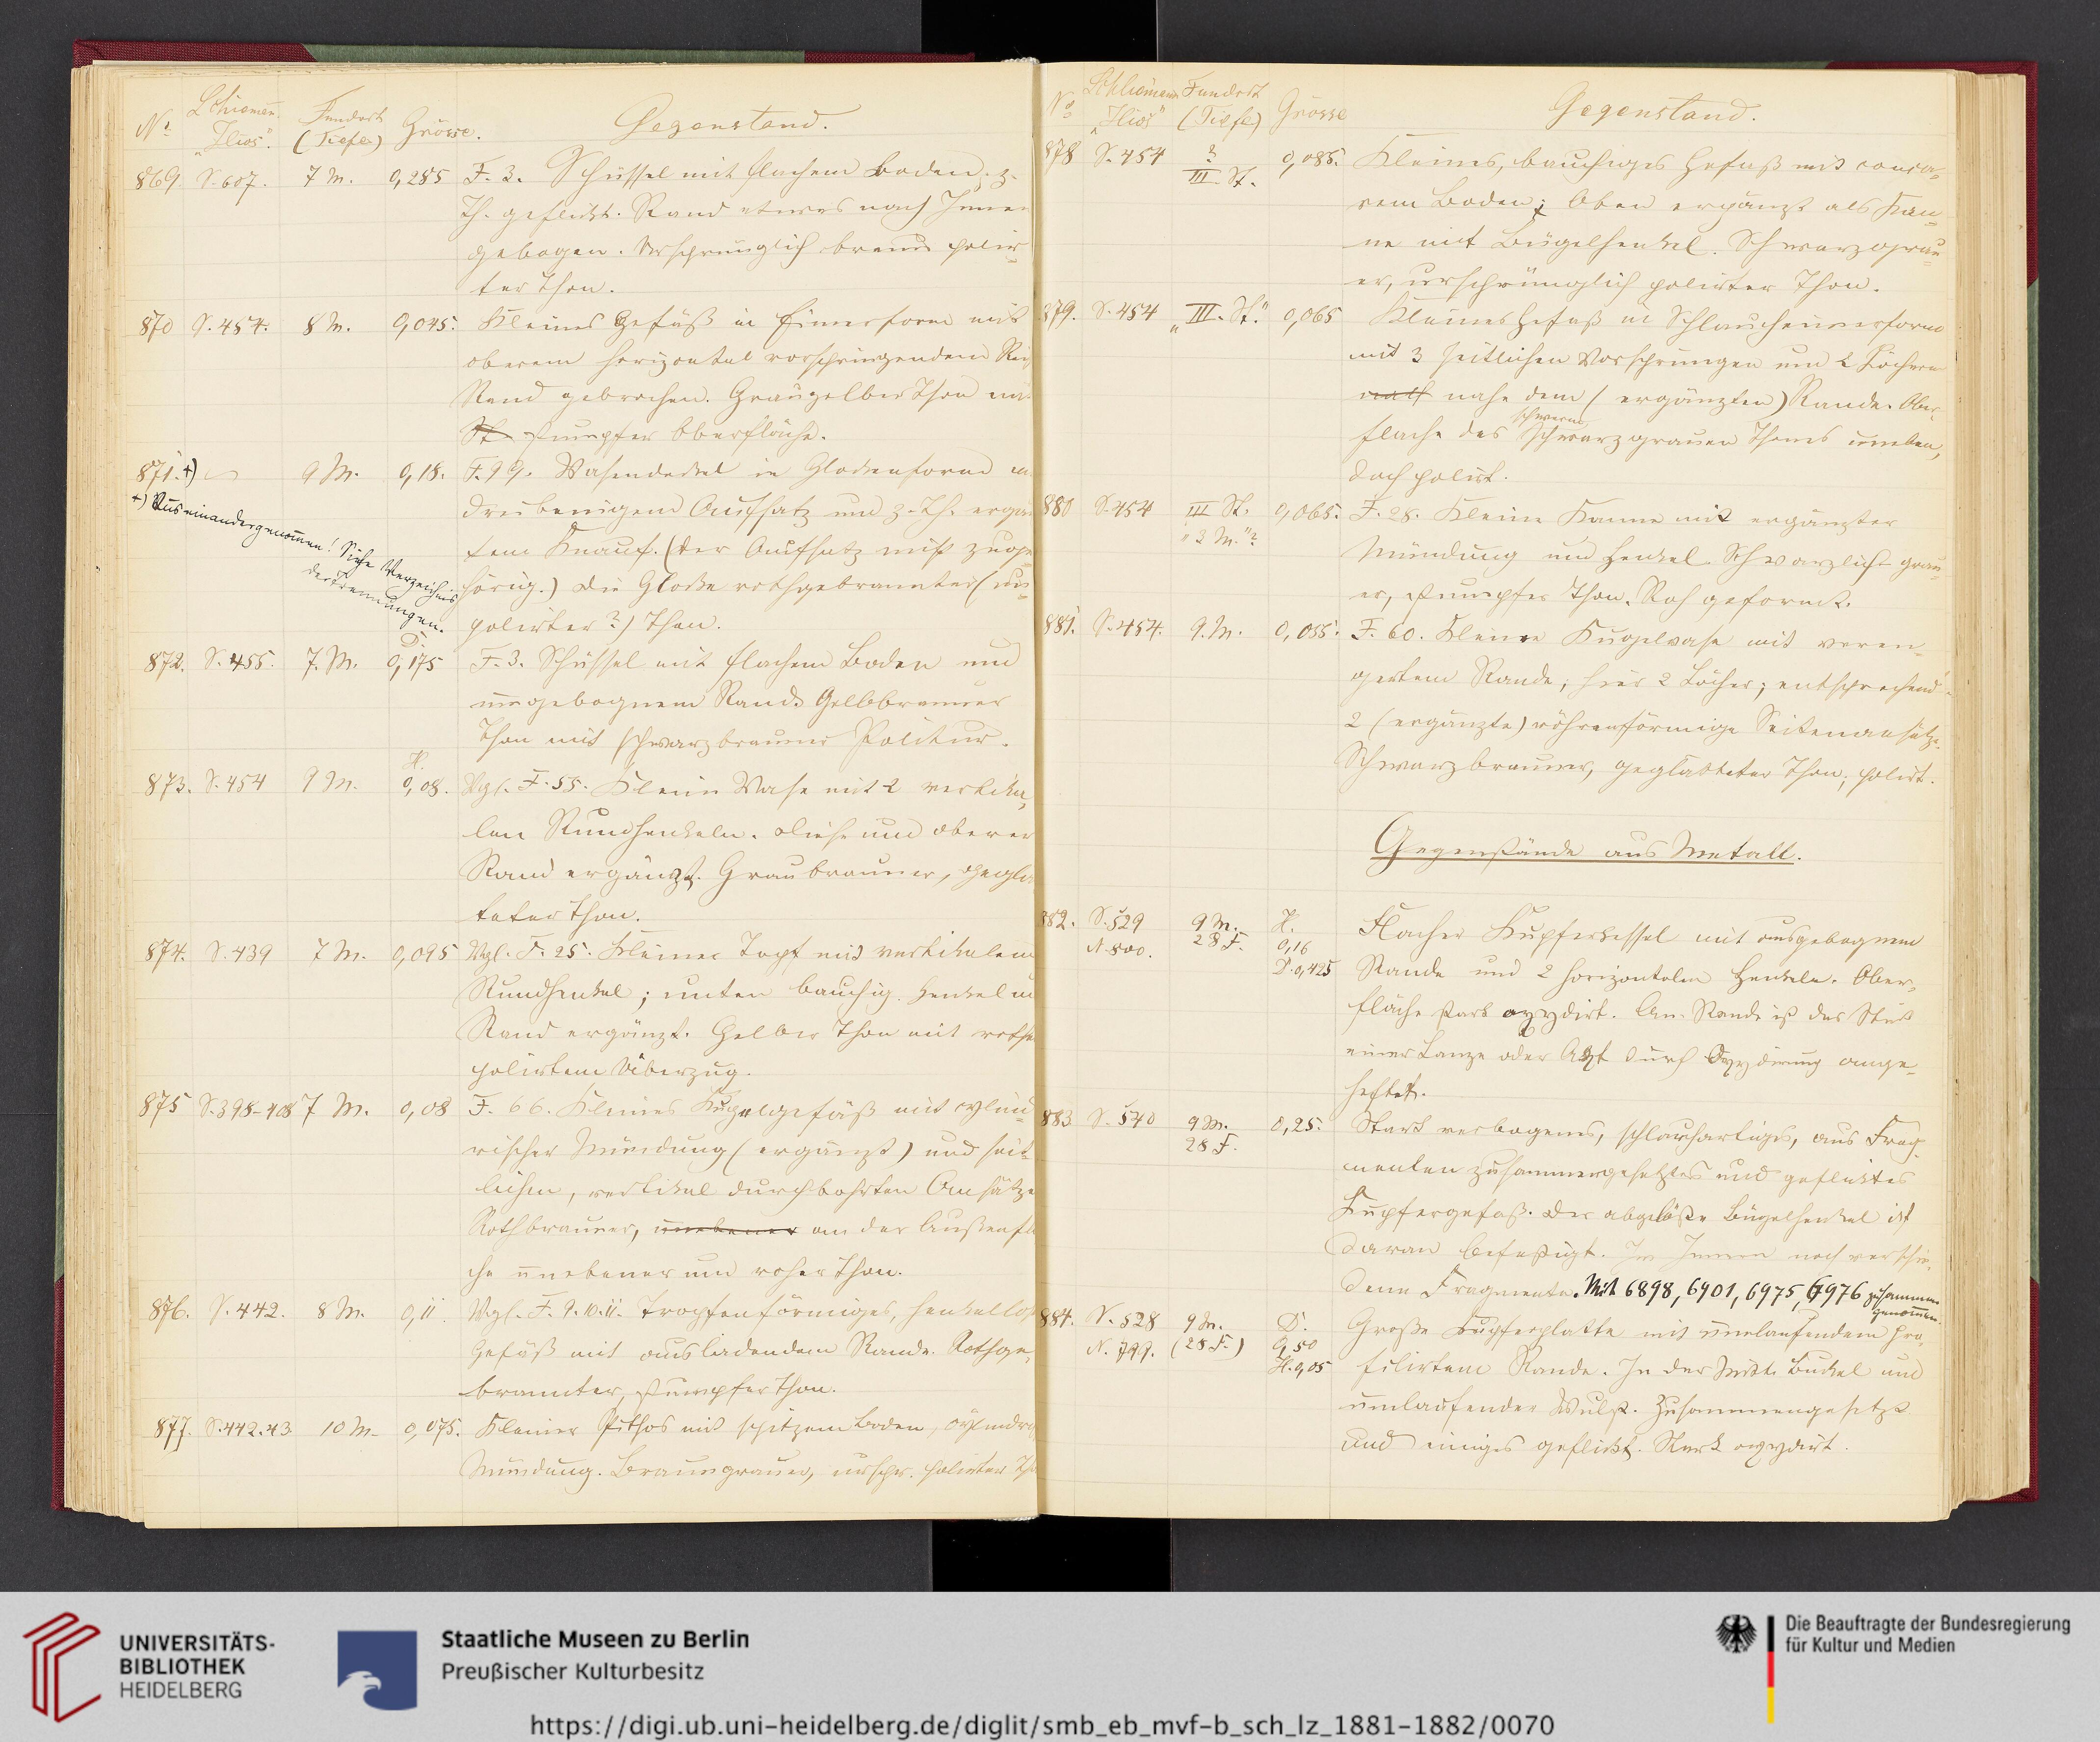 Nº Schliemann „Ilios". Fundort (Tiefe) Grösse. Gegenstand.
869. S. 607. 7 M. 0,285 F. 3. Schüssel mit flachem Boden. z.
Th. geflickt. Rand etwas nach Innen
gebogen. Ursprünglich braun polir-
ter Thon.
870 S. 454. 8 M. 0,045. Kleines Gefäß in Eimerform mit
oberem horizontal vorspringendem
Rand gebrochen. Graugelber Thon mit
St stumpfer Oberfläche.
871. +) 9 M. 0,18. F. 99. Vasendeckel in Glockenform
dreibeinigem Aufsatz und z. Th. ergänz
tem Knauf. (der Aufsatz nicht zuge-
hörig.) Die Glocke rothgebrannter (un-
polirter?) Thon.
+) Auseinandergenommen! Siehe Verzeichnis
der Trennungen.
872. S. 455. 7. M. D. 0,175 F. 3. Schüssel mit flachem Boden und
umgebognem Rand. Gelbbrauner
Thon mit schwarzbrauner Politur.
873. S. 454 9 M. H. 0,08. Vgl. F. 55. Kleine Vase mit 2 vertika-
len Rundhenkeln. diese und oberer
Rand ergänzt. Graubrauner, geglä
teter Thon.
874. S. 439 7 M. 0,095 Vgl. F. 25. Kleiner Topf mit vertikalem
Rundhenkel; unten bauchig. Henkel u
Rand ergänzt. Gelber Thon mit rothe
polirtem Überzug.
875 S. 398-408 7 M. 0,08 F. 66. Kleines Kugelgefäß mit cylind
rischer Mündung (ergänzt) und seit-
lichen, vertikal durchbohrten Ansätze
Rothbrauner, unebener an der Außenflä
che unebener und roher Thon.
876. S. 442. 8 M. 0,11. Vgl. F. 9. 10. 11. Tropfenförmiges, henkellose
Gefäß mit ausladendem Rande. Rothge-
brannter, stumpfer Thon.
877. S. 442.43 10 M. 0,075. Kleiner Pithos mit spitzem Boden, cylindr
Mündung. Braungrauer, urspr. polirter Tho
Nº Schliemann „Ilios" Fundort (Tiefe) Grösse Gegenstand.
878 S. 454 ? III. St. 0,085. Kleines, bauchiges Gefäß mit conca-
vem Boden; Oben ergänzt als Kan-
ne mit Bügelhenkel. Schwarzgrau-
er, ursprünglich polirter Thon.
879. S. 454 „III. St." 0,065 Kleines Gefäß in Schlaucheimerform
mit 3 seitlichen Vorsprüngen und 2 Löchern
nahe dem (ergänzten) Rande. Ober-
fläche des schwarzgrauen Thones uneben,
doch polirt.
880 S. 454 III St. „2 M."? 0,065. F. 28. Kleine Kanne mit ergänzter
Mündung und Henkel. Schwarzlich grau-
er, stumpfer Thon. Roh geformt.
881. S. 454. 9. M. 0,055. F. 60. Kleine Kugelvase mit veren-
gertem Rande, hier 2 Löcher; entsprechend
2 (ergänzte) röhrenförmige Seitenansätze.
Schwarzbrauner, geglätteter Thon; polirt.
Gegenstände aus Metall.
882. S. 529 N. 800. 9 M. 28 F. H. 0,16 D. 0,425 Flacher Kupferkessel mit ausgebognem
Rande und 2 horizontalen Henkeln. Ober-
fläche stark oxydirt. Am Rande ist das Stück
einer Lanze oder Axt durch Oxydirung ange-
heftet.
883 S. 540 9 M. 28 F. 0,25. Stark verbogenes, schlauchartiges, aus Frag-
menten zusammengesetztes und geflicktes
Kupfergefäß. Der abgelöste Bügelhenkel ist
daran befestigt. Im Innern noch verschie-
dene Fragmente. Mit 6898, 6901, 6975, 6976 zusammen
genommen.
884. S. 528 N. 799. 9 M. (28 F.) D. 0,50 H. 0,05 Große Kupferplatte mit umlaufendem pro-
filirtem Rande. In der Mitte Buckel und
umlaufender Wulst. Zusammengesetzt
und einiges geflickt. Stark oxydirt.
UNIVERSITÄTS-
BIBLIOTHEK
HEIDELBERG
Staatliche Museen zu Berlin
Preußischer Kulturbesitz
Die Beauftragte der Bundesregierung
für Kultur und Medien
https://digi.ub.uni-heidelberg.de/diglit/smb_eb_mvf-b_sch_lz_1881-1882/0070